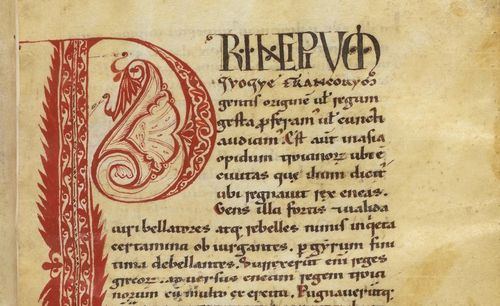 PRINCIPIUM
quoque francorum
gentis origine ul regum
gesta pferam ul cuncti
audiam. Est aut inasia
opidum troianorz ubi ē
ciuitas que ilium dicit
ubi regnauit rex eneas.
Gens illa fortis & ualida
uiri bellatores atq; rebelles nimis inqeta
certamina obiurgantes. p gyrum fini
tima debellantes. Surrexerūt eni reges
grecorz aduersus eneam regem troia
norum cū multo exercitu. Pugnaueruntq;